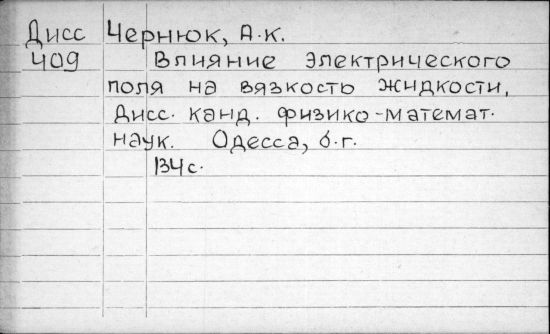 Дисс Чернюк, А.к.
409 Влияние электрического
поля на вязкость жидкости,
Дисс. канд. физико-математ.
наук. Одесса, б.г.
134с.